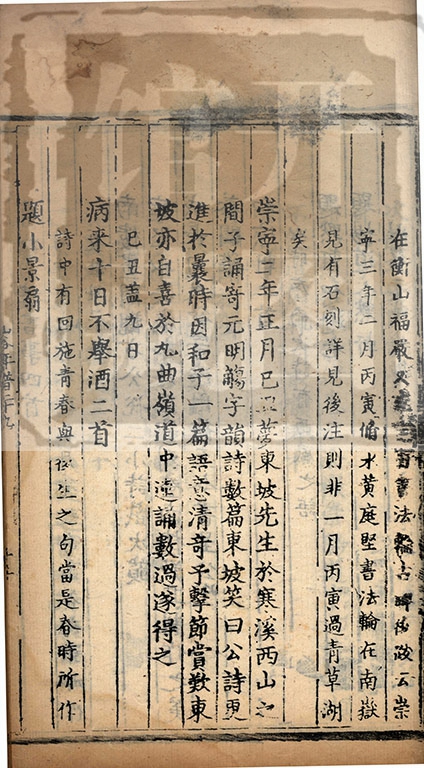 在衡山福嚴又書法輪古碑後跋云崇
寧三年二月丙寅脩水黄庭堅書法輪在南嶽
見有石刻詳見後注則非一月丙寅過青草湖
矣
崇寧二年正月己丑夢東坡先生於寒溪西山之
間予誦寄元明觴字韻詩數篇東坡笑曰公詩更
進於曩時因和予一篇語意清奇予擊節賞歎東
坡亦自喜於九曲嶺道中連誦數過遂得之
己丑盖九日
病来十日不舉酒二首
詩中有回施青春與後生之句當是春時所作
題小景扇